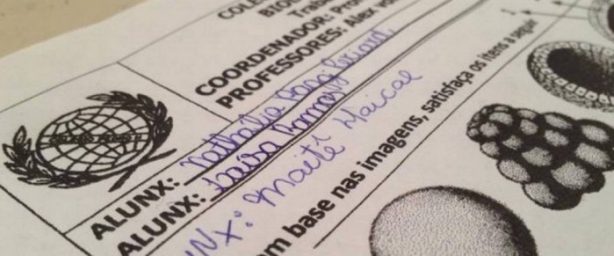 COLÉ
BIO
Traba
COORDENADOR: Pro
PROFESSORES: Alex
ALUNX: Nathália
ALUNX: Raissa Ramos
NX: Maitê Maical
m base nas imagens, satisfaça os itens a seguir